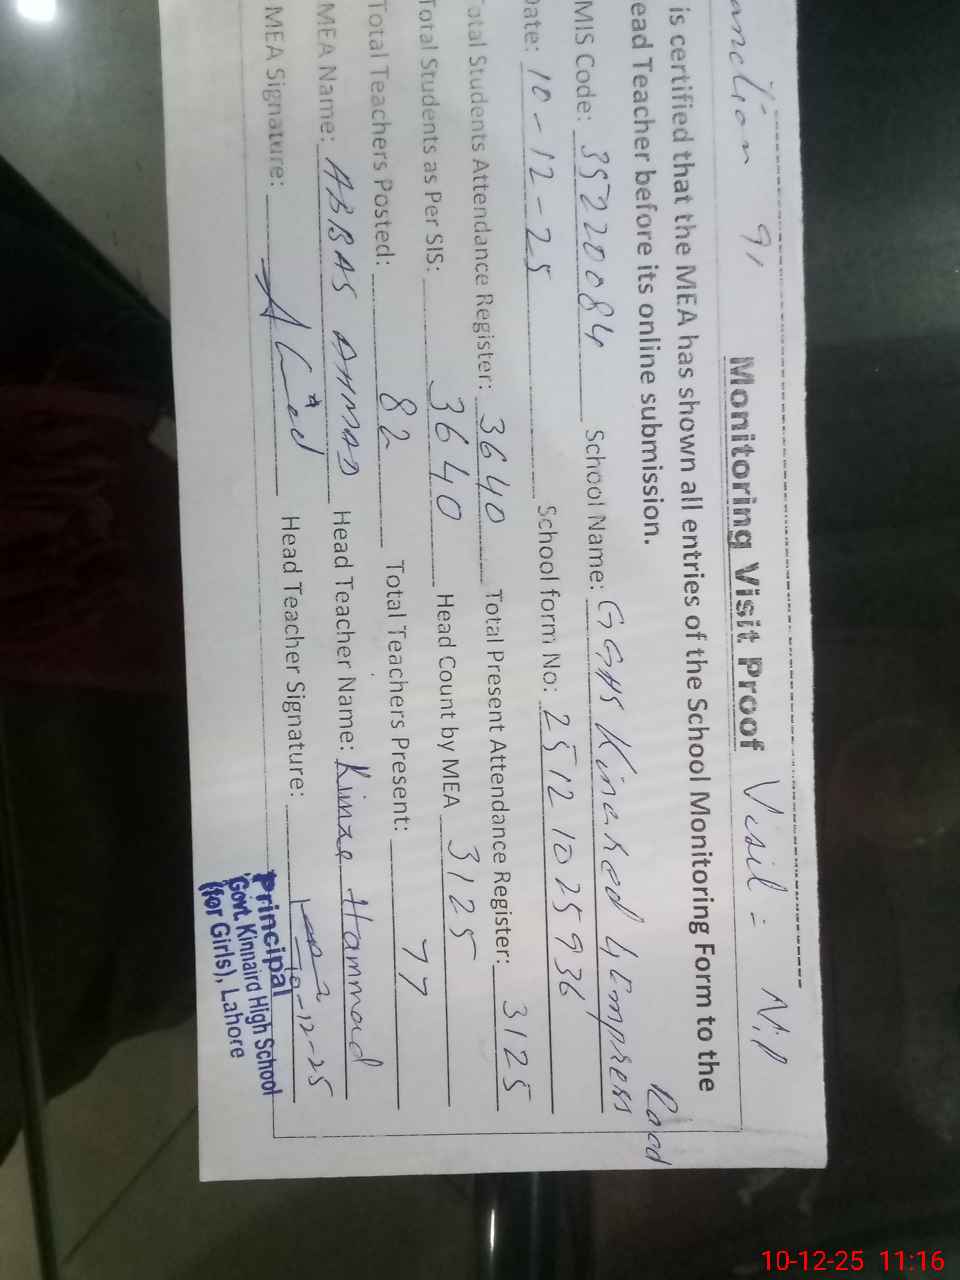 anction 91
Monitoring Visit Proof Visit = Nil
is certified that the MEA has shown all entries of the School Monitoring Form to the
ead Teacher before its online submission.
MIS Code: 35220084 School Name: GGHS Kinared 4, Empress Road
Date: 10-12-25 School form No: 25121025936
otal Students Attendance Register: 3640 Total Present Attendance Register: 3125
Total Students as Per SIS: 3640 Head Count by MEA 3125
Total Teachers Posted: 82 Total Teachers Present: 77
MEA Name: ABBAS AHMAD Head Teacher Name: Kinza Hammad
MEA Signature: Head Teacher Signature:
10-12-25
Principal
Govt. Kinnaird High School
(for Girls), Lahore
10-12-25 11:16